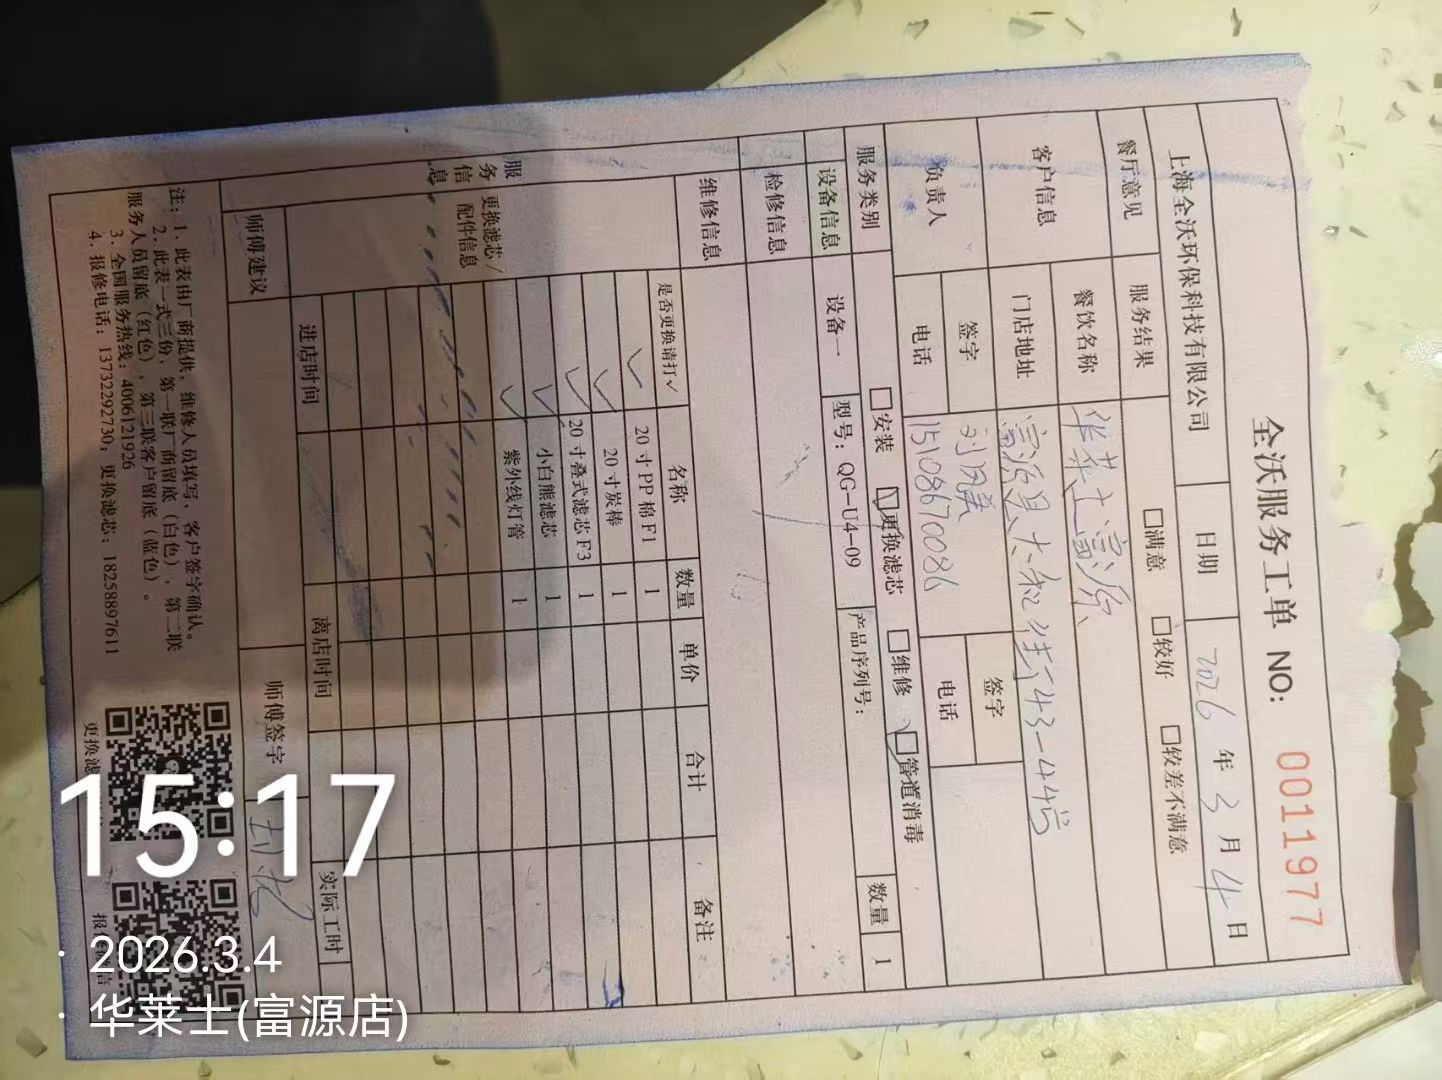 全沃服务工单 NO: 0011977
上海全沃环保科技有限公司 日期 2026 年 3 月 4 日
餐厅意见 服务结果 □满意 □较好 □较差不满意
客户信息 餐饮名称 华莱士富源
门店地址 富源县太和街43-44号
负责人 签字 签字
电话 15108670086 电话
服务类别 □安装 ☑更换滤芯 □维修 ☑管道消毒
设备信息 设备一 型号：QG-U4-09 产品序列号： 数量 1
检修信息
服务信息 维修信息
更换滤芯/配件信息 是否更换请打✓ 名称 数量 单价 合计 备注
✓ 20寸PP棉F1 1
✓ 20寸炭棒 1
✓ 20寸叠式滤芯F3 1
✓ 小白熊滤芯 1
✓ 紫外线灯管 1
进店时间 离店时间 实际工时
师傅建议 师傅签字
注：1. 此表由厂商提供，维修人员填写，客户签字确认。
2. 此表一式三份，第一联厂商留底（白色），第二联
服务人员留底（红色），第三联客户留底（蓝色）。
3. 全国服务热线：4006121926
4. 报修电话：13732292730，更换滤芯：18258897611
更换滤
报
15:17
· 2026.3.4
· 华莱士(富源店)